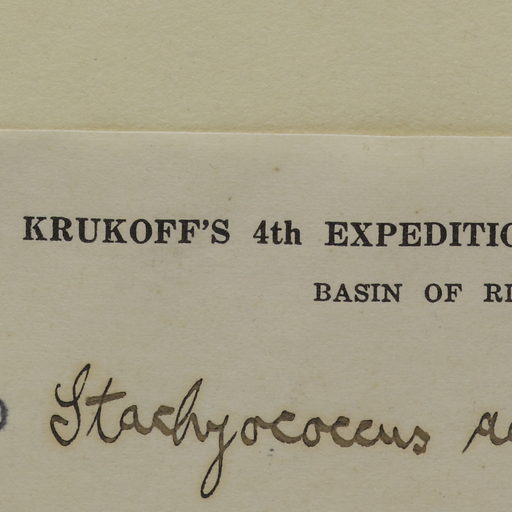 KRUKOFF'S 4th EXPEDITIO
BASIN OF RI
Stachyococcus